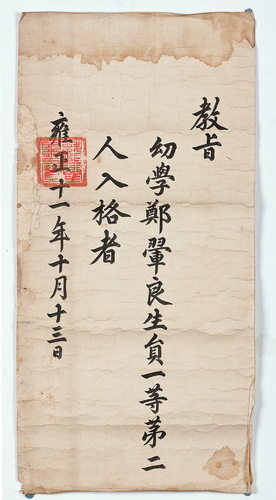 教旨
幼學鄭翬良生負一等苐二
人入格者
雍正十一年十月十三日